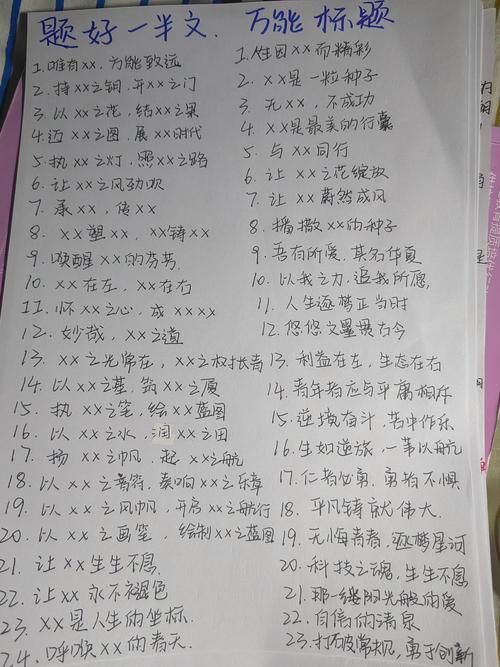 题好一半文. 万能标题
1. 唯有xx, 方能致远
2. 持xx之钥, 开xx之门
3. 以xx之花, 结xx之果
4. 迈xx之图, 展xx时代
5. 执xx之灯, 照xx之路
6. 让xx之风劲吹
7. 承xx, 传xx
8. xx塑xx, xx铸xx
9. 唤醒xx的芬芳.
10. xx在左, xx在右
11. 怀xx之心, 成xxxx
12. 妙哉, xx之道
13. xx之光常在, xx之树长青
14. 以xx之基, 筑xx之厦
15. 执xx之笔, 绘xx蓝图
16. 以xx之水, 润xx之田
17. 扬xx之帆, 起xx之航
18. 以xx之音符, 奏响xx之乐章
19. 以xx之风帆, 开启xx之航行
20. 以xx之画笔, 绘制xx之蓝图
21. 让xx生生不息
22. 让xx永不褪色
23. xx是人生的坐标.
24. 呼唤xx的春天.
1. 生因xx而精彩
2. xx是一粒种子
3. 无xx, 不成功
4. xx是最美的行囊
5. 与xx同行
6. 让xx之花绽放
7. 让xx蔚然成风
8. 播撒xx的种子
9. 吾有所爱, 其名华夏
10. 以我之力, 追我所愿,
11. 人生逐梦正当时
12. 悠悠文墨贯古今
13. 利益在左, 生态在右
14. 青年者应与平庸相斥
15. 逆境奋斗, 苦中作乐
16. 生如逆旅, 一苇以航
17. 仁者必勇, 勇者不惧
18. 平凡铸就伟大.
19. 无悔青春, 逐梦星河
20. 科技之魂, 生生不息
21. 那一缕阳光般的爱
22. 自信的清泉
23. 打破常规, 勇于创新